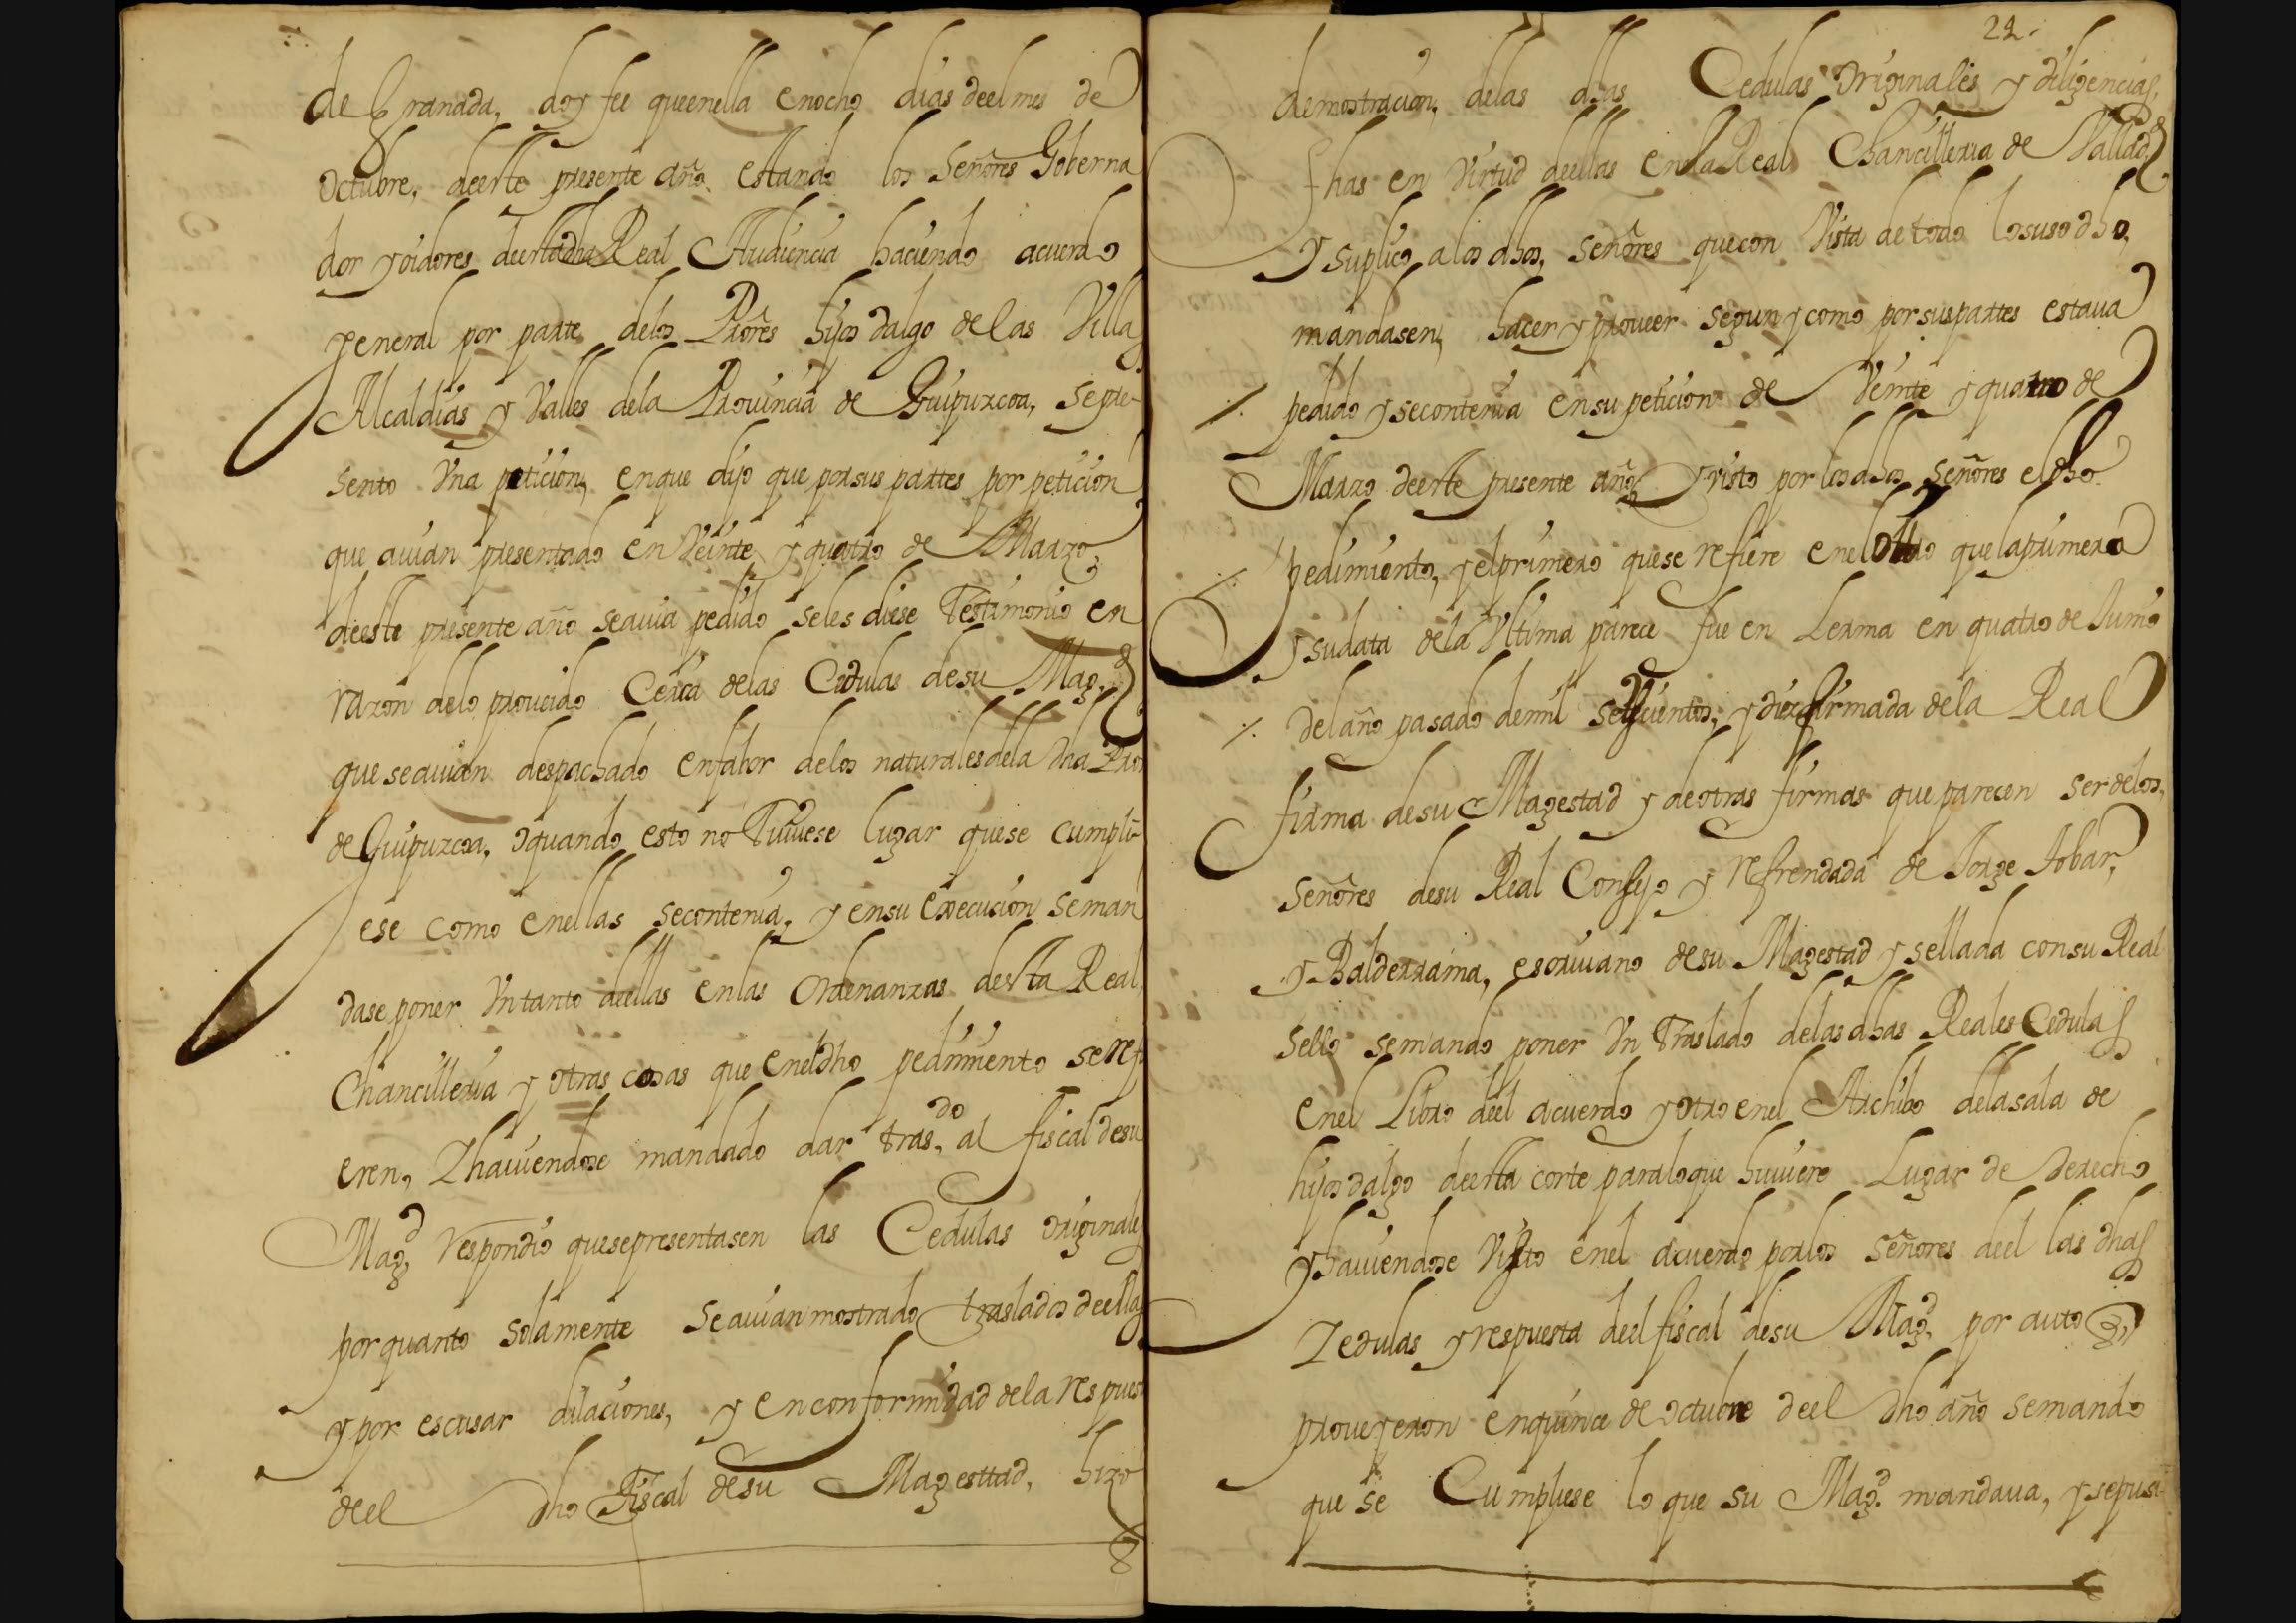 de Granada, doy fee queenella enocho dias deel mes de
Octubre, deeste presente año estando los Señores Goberna
dor y oidores deestadha Real Audiencia haciendo acuerdo
general por parte delos hijos dalgo de las Villas
Alcaldias y Valles dela Prouincia de Guipuzcoa, sepre-
sento Vna peticion, enque dijo que porsus partes por peticion
que auian presentado en Veinte y quatro de Marzo,
deeste presente año seauia pedido seles diese Testimonio en
razon delo proueido Cerca delas Cedulas desu Magd.
que seauian despachado enfabor delos naturalesdela dha
de Guipuzcoa, oquando esto no Tuuiese lugar quese cumpli-
ese como enellas secontenia, y ensu execucion seman
dase poner Vntanto deellas enlas Ordenanzas desta Real
Chancilleria y otras cosas que eneldho pedimiento serefi
eren, Yhauiendose mandado dar tras.do al fiscal desu
Magd. respondio quesepresentasen las Cedulas originales
porquanto solamente seauian mostrado traslados deellas
y por escusar dilaciones, y enconformidad dela respues
deel dho Fiscal desu Magesttad, hizo
24.
demostracion, delas dhas Cedulas originales y diligencias,
fhas en Virtud deellas enlaReal Chancilleria de Vallad
Y suplico alos dhos, señores quecon Vista detodo losusodho,
mandasen, hacer y proueer segun y como porsuspartes estaua
pedido y secontenia ensu peticion de Veinte y quatro de
Marzo deeste presente año, y visto por losdhos señores eldho
pedimiento, y elprimero quese refiere enelottro quelaprimera
y sudata dela Vltima parece fue en Lerma en quatro de Junio
del año pasado demil seiscientos, y diez firmada dela Real
firma desu Magestad y deotras firmas queparecen serdelos,
señores desu Real Consejo y refrendada de Jorge Tobar,
y Balderrama, escriuano desu Magestad y sellada consu Real
sello semando poner Vn Traslado delasdhas Reales Cedulas
enel Libro deel acuerdo y otro enel Archibo delasala de
hijosdalgo deesta corte paraloque huuiere Lugar de derecho
yhauiendose Visto enel acuerdo porlos señores deel las dhas
Zedulas y respuesta deel fiscal desu Magd. por auto q
proueyeron enquince de octubre deel dho año semando
que se Cumpliese lo que su Magd. mandaua, y sepusi-